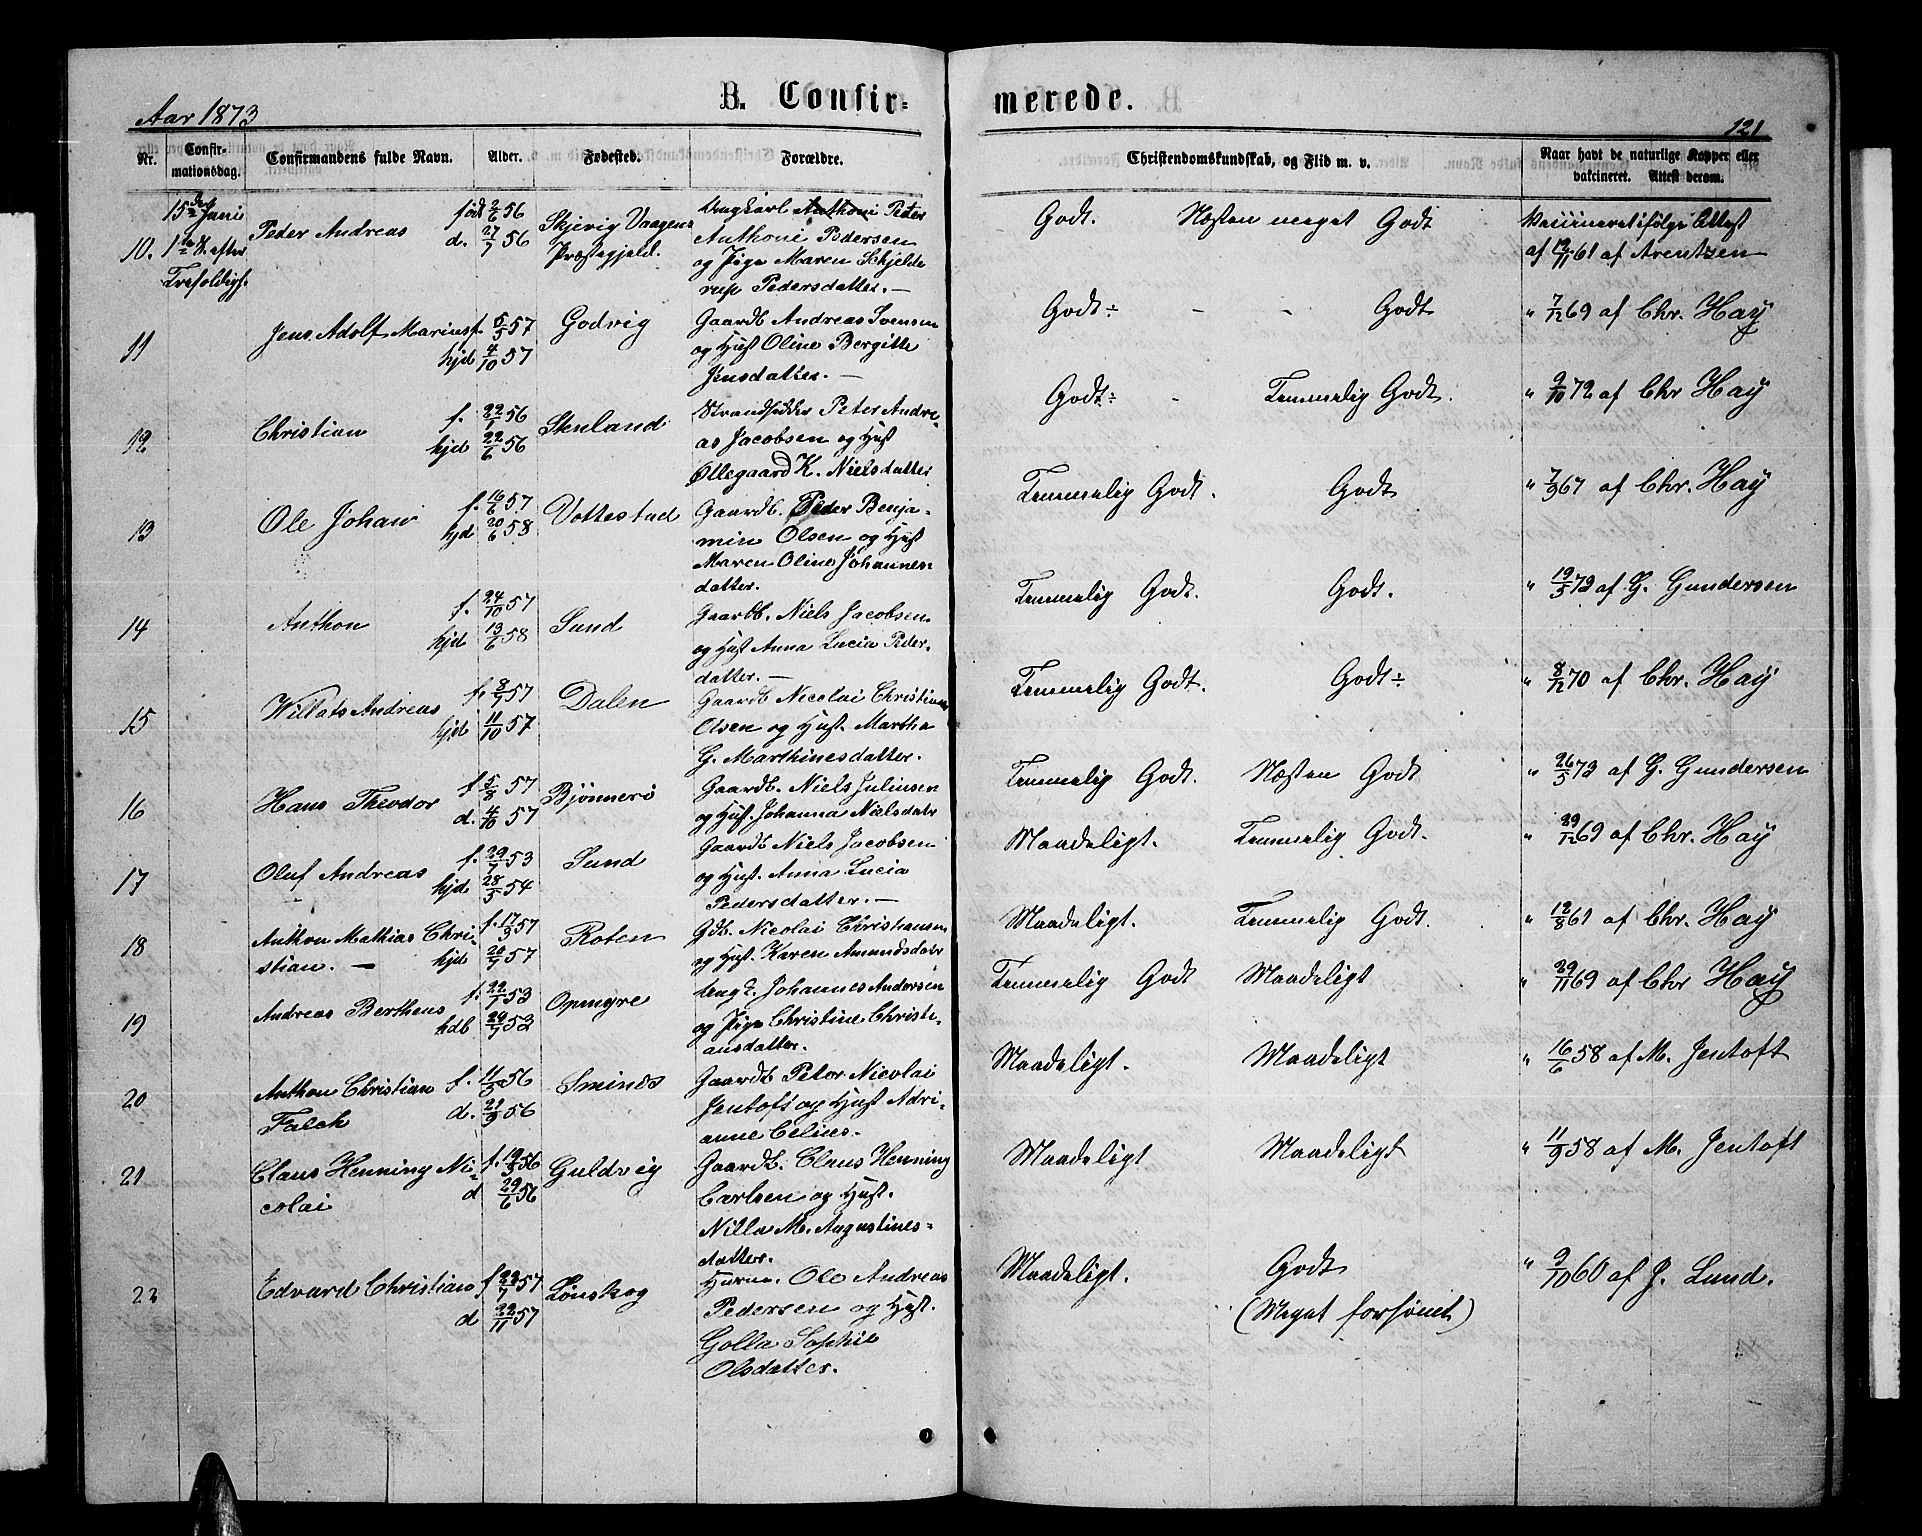 Aar 1873
B. Confir-
merede.
121
Nr.
Confir-
mationsdag.
Confirmandens fulde Navn.
Alder.
Fødested.
Forældre.
Christendomskundskab, og Flid m. v.
Naar havt de naturlige Kopper eller
vakcineret. Attest derom.
15de Juni
1ste S. efter
Trefoldigh.
10.
Peder Andreas
født 2/6 56
d. 27/7 56
Skjevig Vaagens
Præstegjeld.
Ungkarl Anthoni Peter
Anthoni Pedersen
og Pige Maren Schjelde
rup Pedersdatter. —
Godt. Næsten meget Godt
Vaccineret ifølge Attest
af 12/11 61 af Arentzen
11
Jens Adolf Marius
f. 5/5 57
hjd 4/10 57
Godvig
Gaardb Andreas Svensen
og Hust Oline Bergitte
Jensdatter. —
Godt ÷ - - Godt
" 7/12 69 af Chr. Hay
12
Christian
f. 22/1 56
hjd 22/6 56
Stenland
Strandsidder Peter Andre-
as Jacobsen og Hust
Øllegaard K. Nielsdatter
Godt ÷ - Temmelig Godt.
" 9/10 72 af Chr Hay
13
Ole Johan
f. 16/6 57
hjd 20/6 58
Vottestad
Gaardb. Peder Benja-
min Olsen og Hust
Maren Oline Johannes-
datter.
Temmelig Godt. Godt
" 7/9 67 af Chr. Hay
14
Anthon
f. 24/10 57
hjd 13/6 58
Sund
Gaardb. Niels Jacobsen
og Hust Anna Lucia Peder-
datter. —
Temmelig Godt. Godt.
" 19/5 73 af G. Gundersen
15
Willats Andreas
f. 8/7 57
hjd 11/10 57
Dalen
Gaardb Nicolai Christian
Olsen og Hust. Martha
G. Marthinesdatter.
Temmelig Godt. Godt ÷
" 8/12 70 af Chr. Hay
16
Hans Theodor
f. 5/8 57
d. 4/10 57
Bjønnerö
Gaardb. Niels Juliussen
og Hust. Johanna Nielsdatr
Temmelig Godt. Næsten Godt
" 26/5 73 af G. Gundersen
17
Oluf Andreas
f. 29/7 53
hjd 28/5 54
Sund
Gaardb Niels Jacobsen
og Hust. Anna Lucia
Pedersdatter. —
Maadeligt. Temmelig Godt.
" 29/12 69 af Chr. Hay
18
Anthon Mathias Chri-
stian. —
f. 17/3 57
hjd 20/7 57
Roten
Gdb. Nicolai Christiansen
og Hust. Karen Amundsdatr
Maadeligt. Temmelig Godt.
" 12/8 61 af Chr. Hay
19
Andreas Bertheus
f. 22/1 53
hdb 24/7 53
Opmyre
Ungk. Johannes Andersen
og Pige Christine Christi-
ansdatter.
Temmelig Godt Maadeligt
" 29/11 69 af Chr Hay
20
Anthon Christian
Falch
f. 11/3 56
d. 21/3 56
Sminds
Gaardb Peter Nicolai
Jentoft og Hust Adri-
anne Celius.
Maadeligt. Maadeligt
" 16/6 58 af M. Jentoft
21
Claus Henning Ni-
colai
f. 19/3 56
d 29/6 56
Guldvig
Gaardb. Claus Henning
Carlsen og Hust.
Nilla M. Augustines-
datter.
Maadeligt Maadeligt
" 11/9 58 af M. Jentoft
22
Edvard Christian
f 22/7 57
d 22/11 57
Lønskog
Huusm. Ole Andreas
Pedersen og Hust.
Golla Sophie
Olsdatter.
Maadeligt. Godt
(Meget forsømt)
" 9/10 60 af J. Lund.